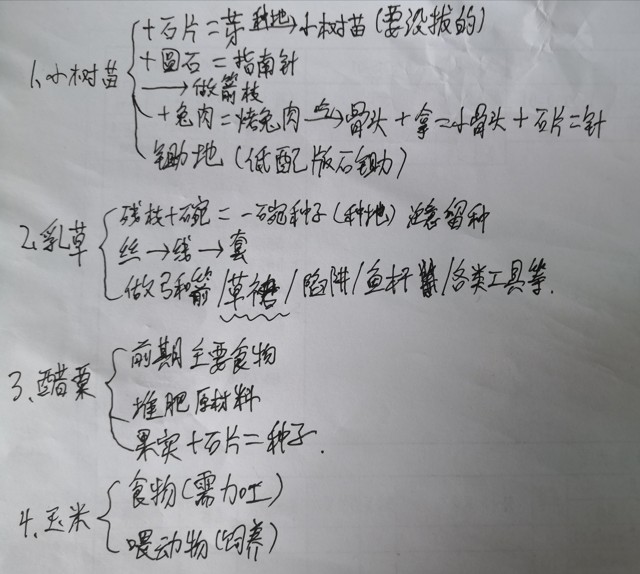 +石片=芽 种地→小树苗(要没拔的)
+圆石=指南针
1、小树苗
→做箭枝
+兔肉=烤兔肉 吃→骨头+拿=小骨头+石片=针
锄地(低配版石锄)
残枝+碗=一碗种子(种地) 注意留种
2、乳草
丝→线→套
做弓和箭/草裙/陷阱/鱼杆/各类工具等.
前期主要食物
3、醋栗
堆肥原材料
果实+石片=种子.
食物(需加工)
4、玉米
喂动物(饲养)